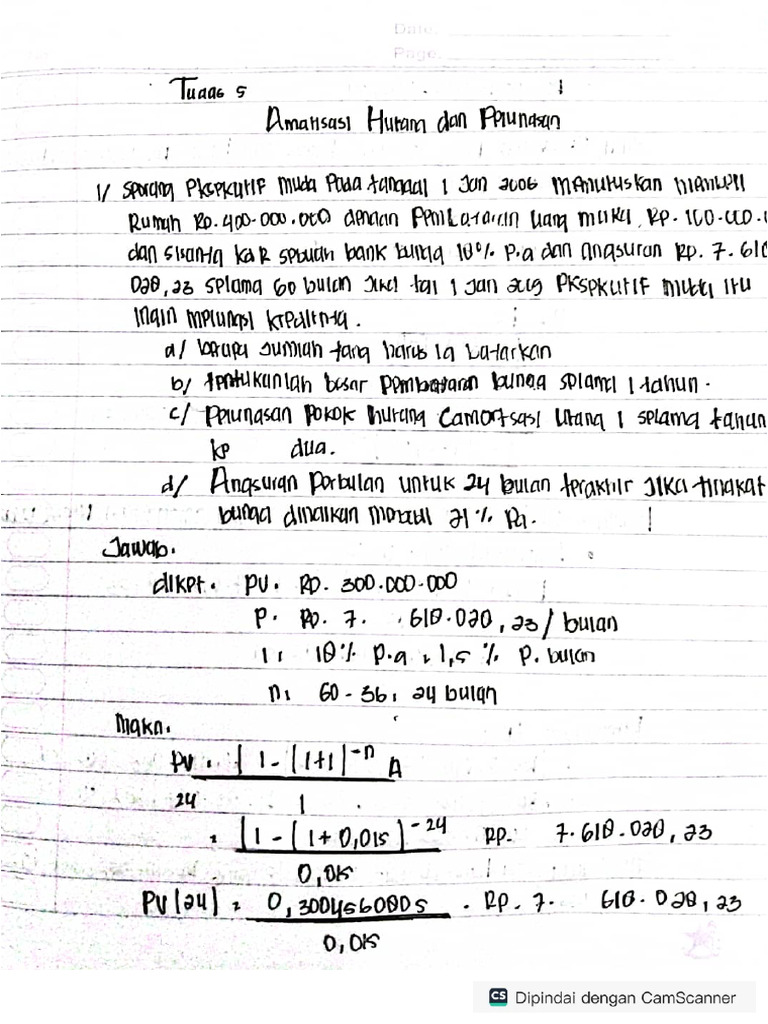 Date:
Page:
Tugas 5
Amortisasi Hutang dan Pelunasan
1/ Seorang Eksekutif muda pada tanggal 1 Jan 2006 memutuskan membeli
Rumah Rp. 400.000.000 dengan Pembayaran uang muka Rp. 100.000.0
dan sisanya KPR sebuah bank bunga 18% p.a dan angsuran Rp. 7.618
028,23 selama 60 bulan Jika tgl 1 Jan 2009 Eksekutif muda itu
ingin melunasi kreditnya.
a/ berapa Jumlah yang harus ia bayarkan
b/ tentukanlah besar pembayaran bunga selama 1 tahun.
c/ Pelunasan Pokok hutang Camortsasi utang 1 selama tahun
ke dua.
d/ Angsuran Perbulan untuk 24 bulan terakhir Jika tingkat
bunga dinaikan menjadi 21% Pa.
Jawab.
diket. PV. Rp. 300.000.000
P. Rp. 7. 618.028,23/ bulan
i: 18% p.a = 1,5 % P. bulan
n: 60 - 36 = 24 bulan
Maka.
PV = [1-(1+i)-n A
24 i
= [1-(1+0,015)-24 RP. 7.618.028,23
0,015
PV(24) = 0,300456080 5 . RP. 7. 618.028,23
0,015
CS Dipindai dengan CamScanner